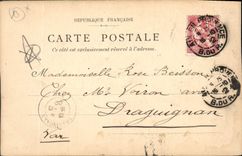 RÉPUBLIQUE FRANÇAISE
CARTE POSTALE
Ce côté est exclusivement réservé à l'adresse.
Mademoiselle Rose Beisson
Chez Mr Viron avoué
Draguignan
Var